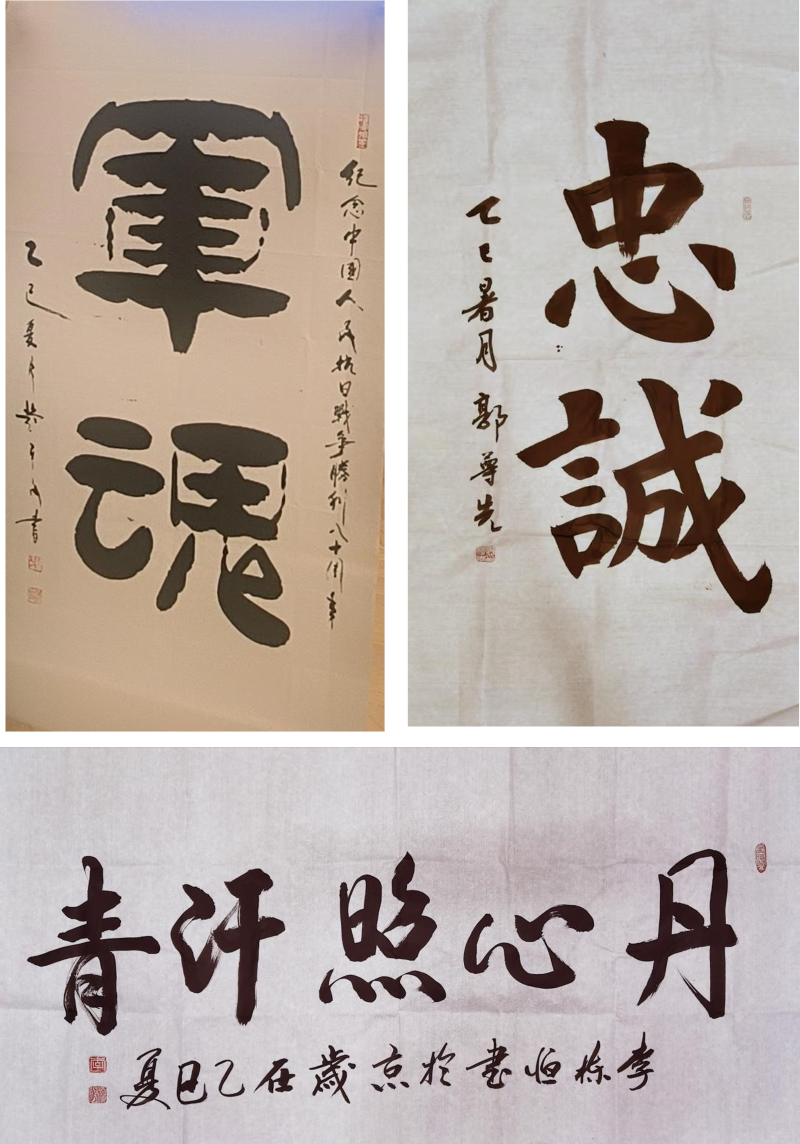 纪念中国人民抗日戰爭勝利八十周年
軍魂
乙巳夏月書
忠誠
乙巳暑月 郭尊先
丹心照汗青
李栋恒書於京歲在乙巳夏